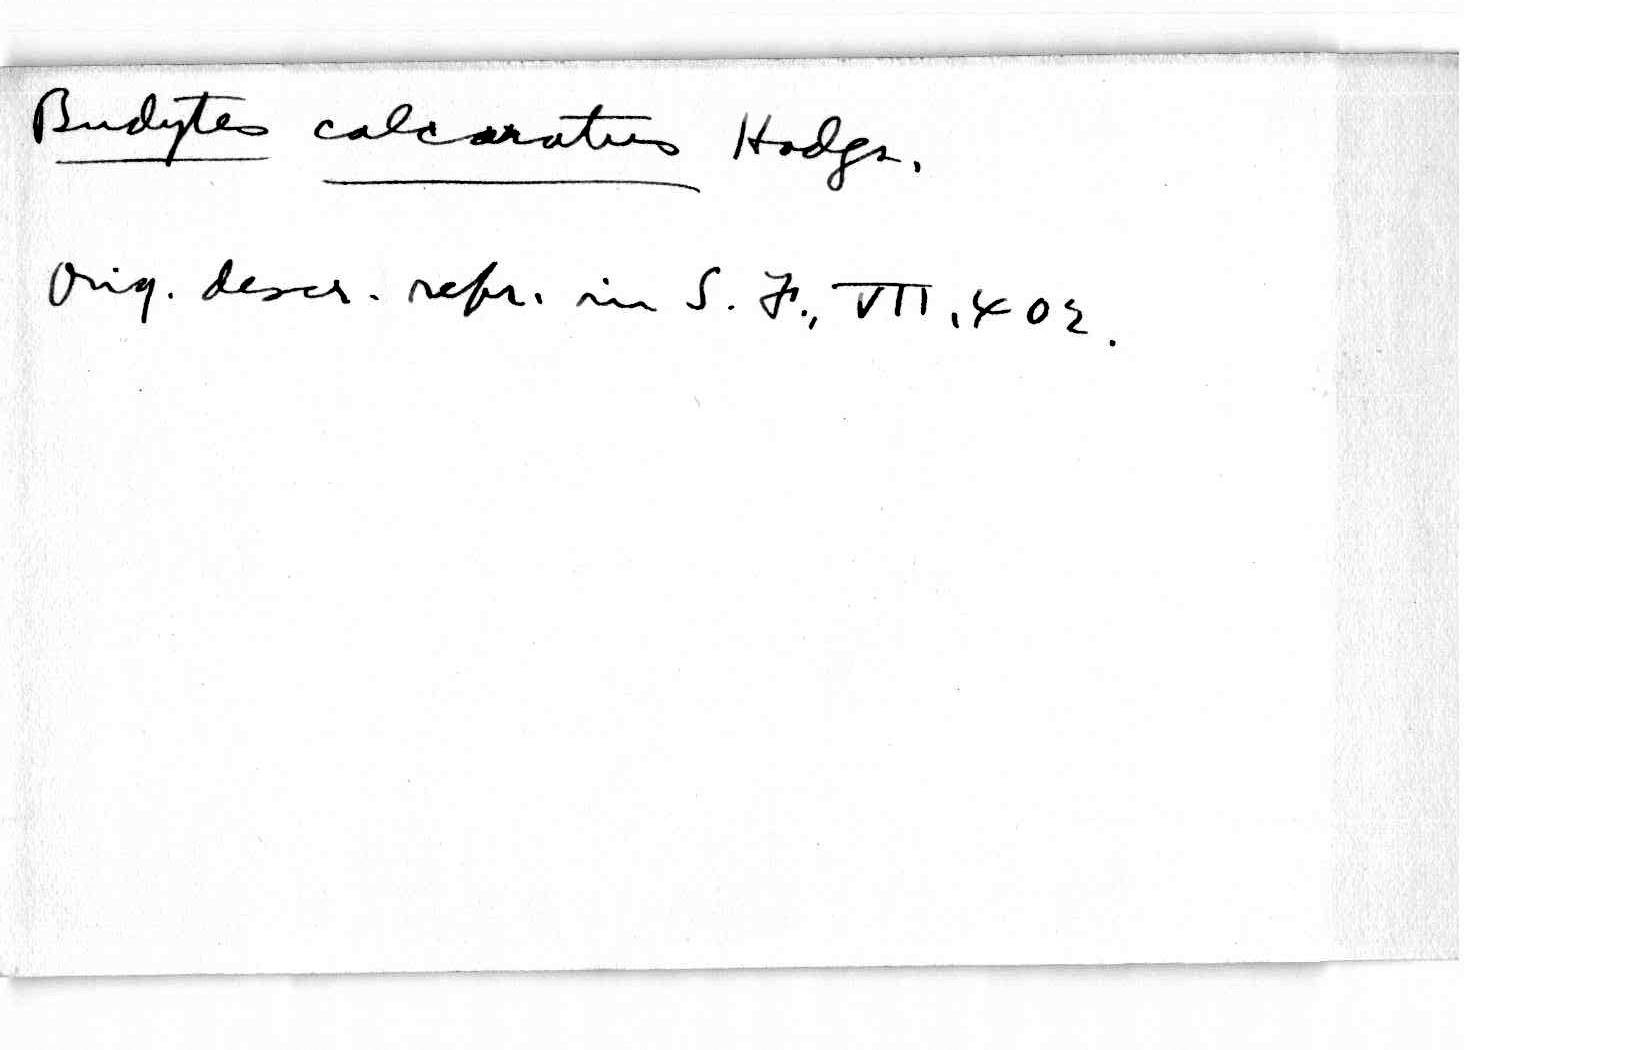 Budytes calcaratus Hodgs.
Orig. descr. repr. in S. F., VII, 402.